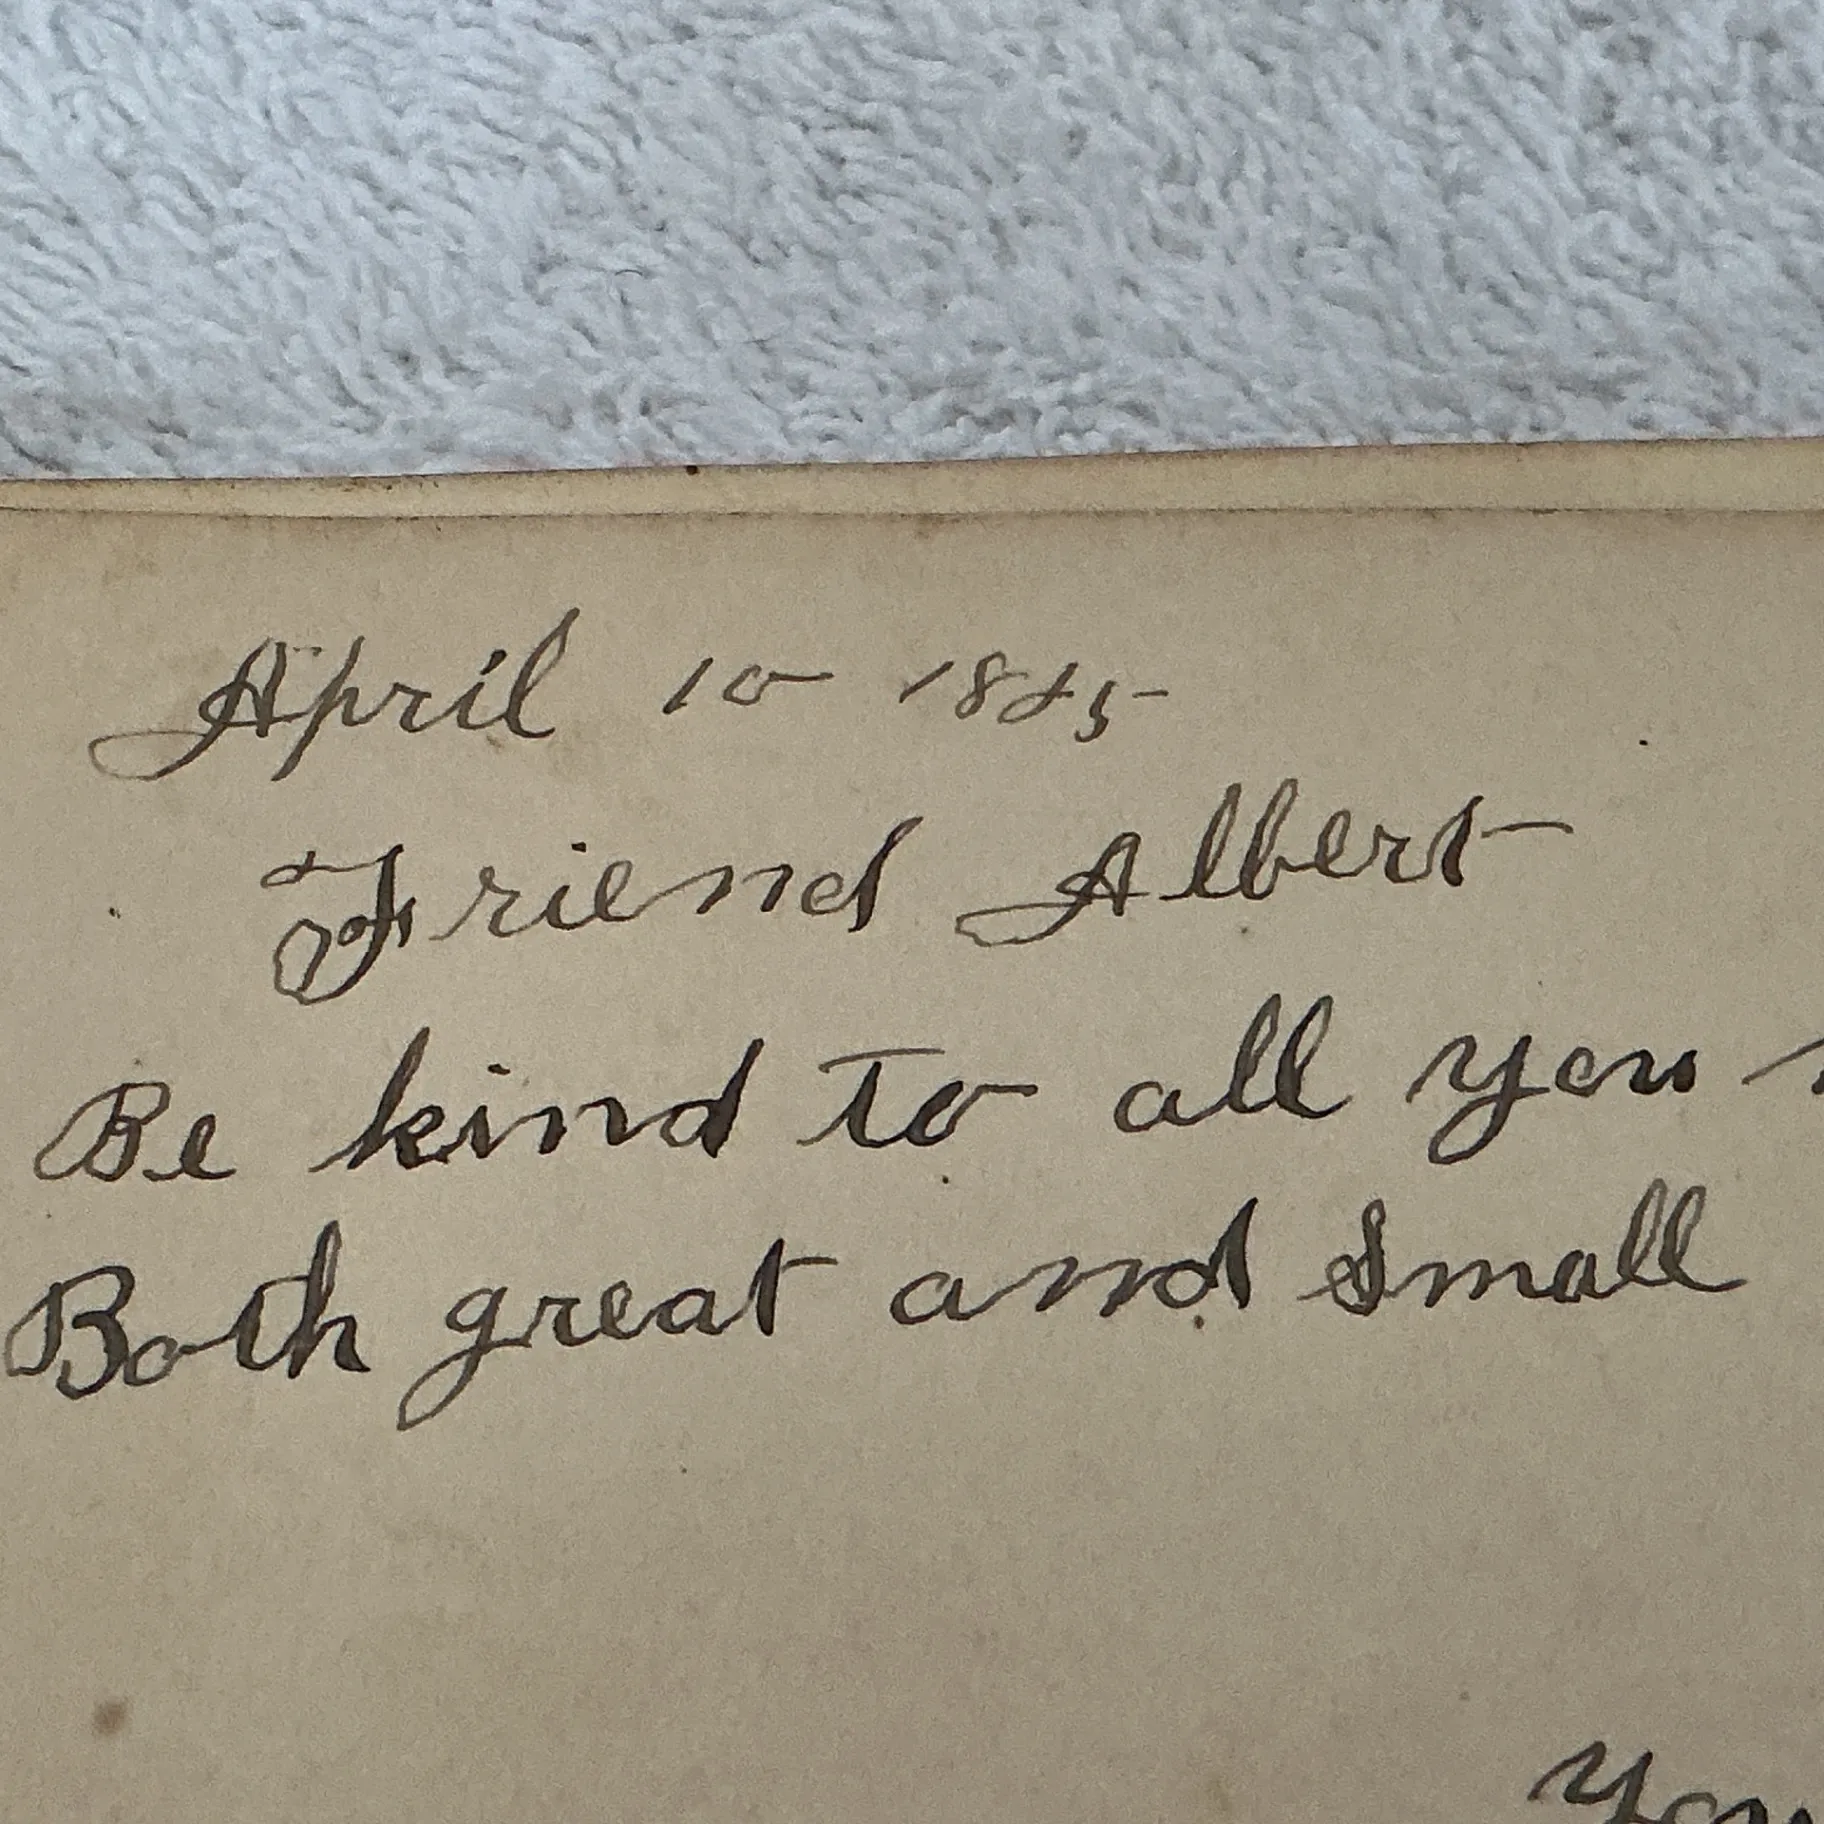 April 10 1885
Friend Albert
Be kind to all you
Both great and small